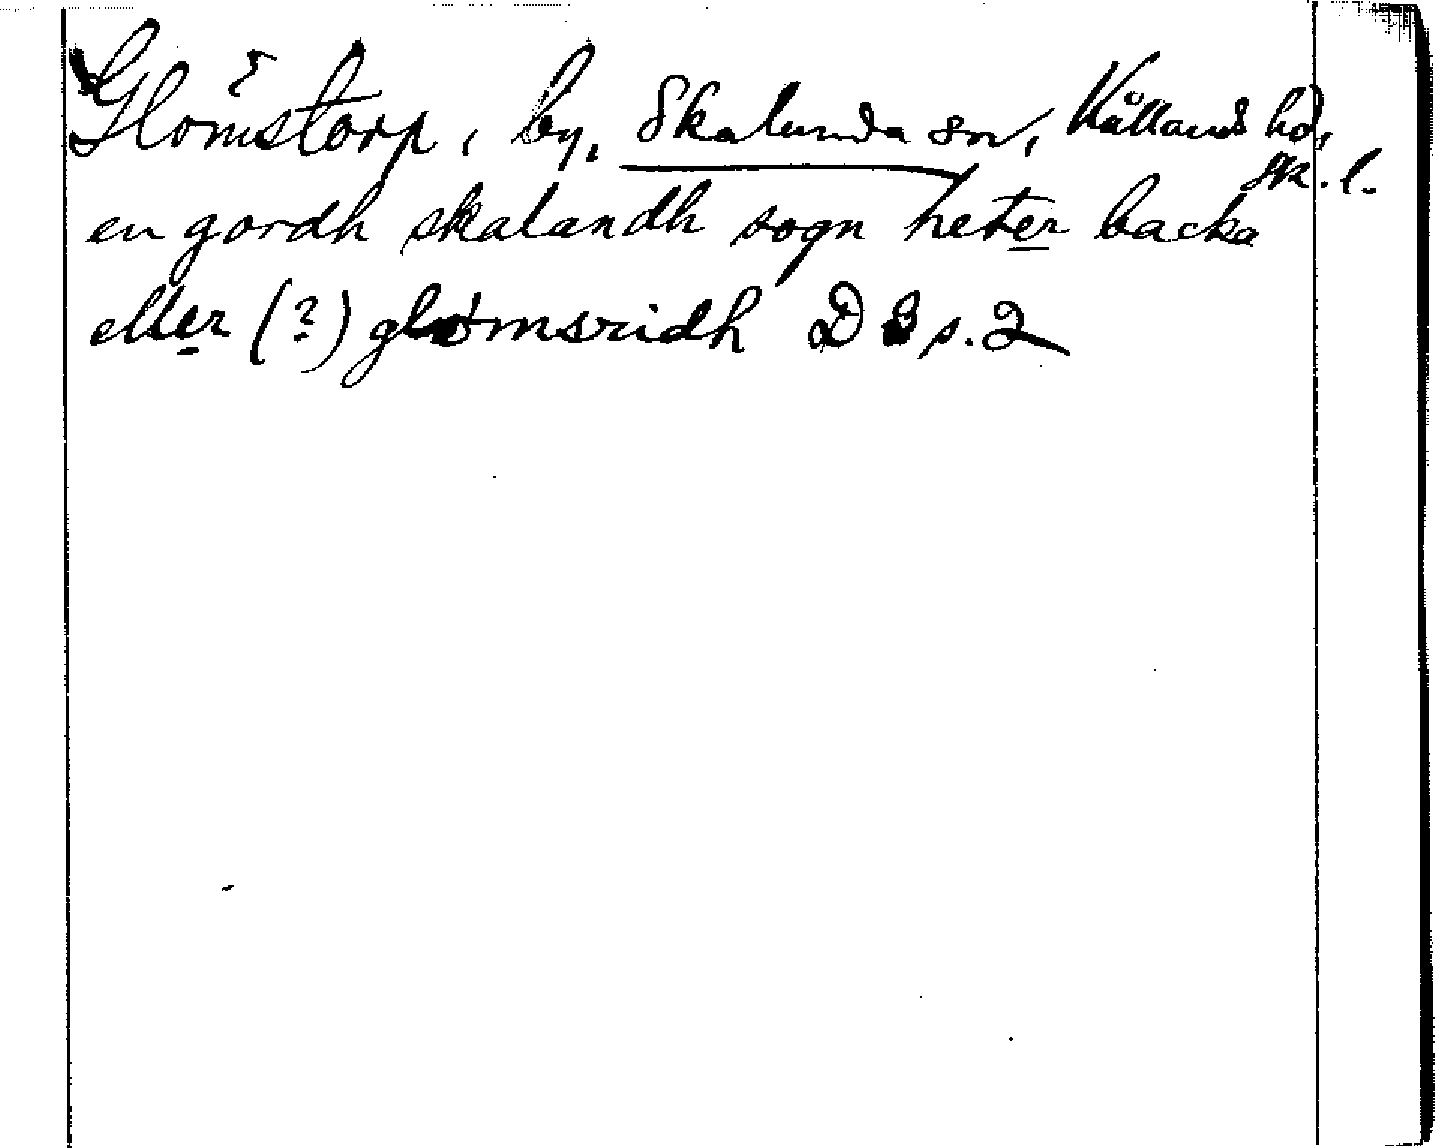 Glomstorp, by, Skalunda sn, Kållands hd,
Sk. l.
en gordh skalandh sogn heter backa
eller (?) glømsridh D 3 s. 2